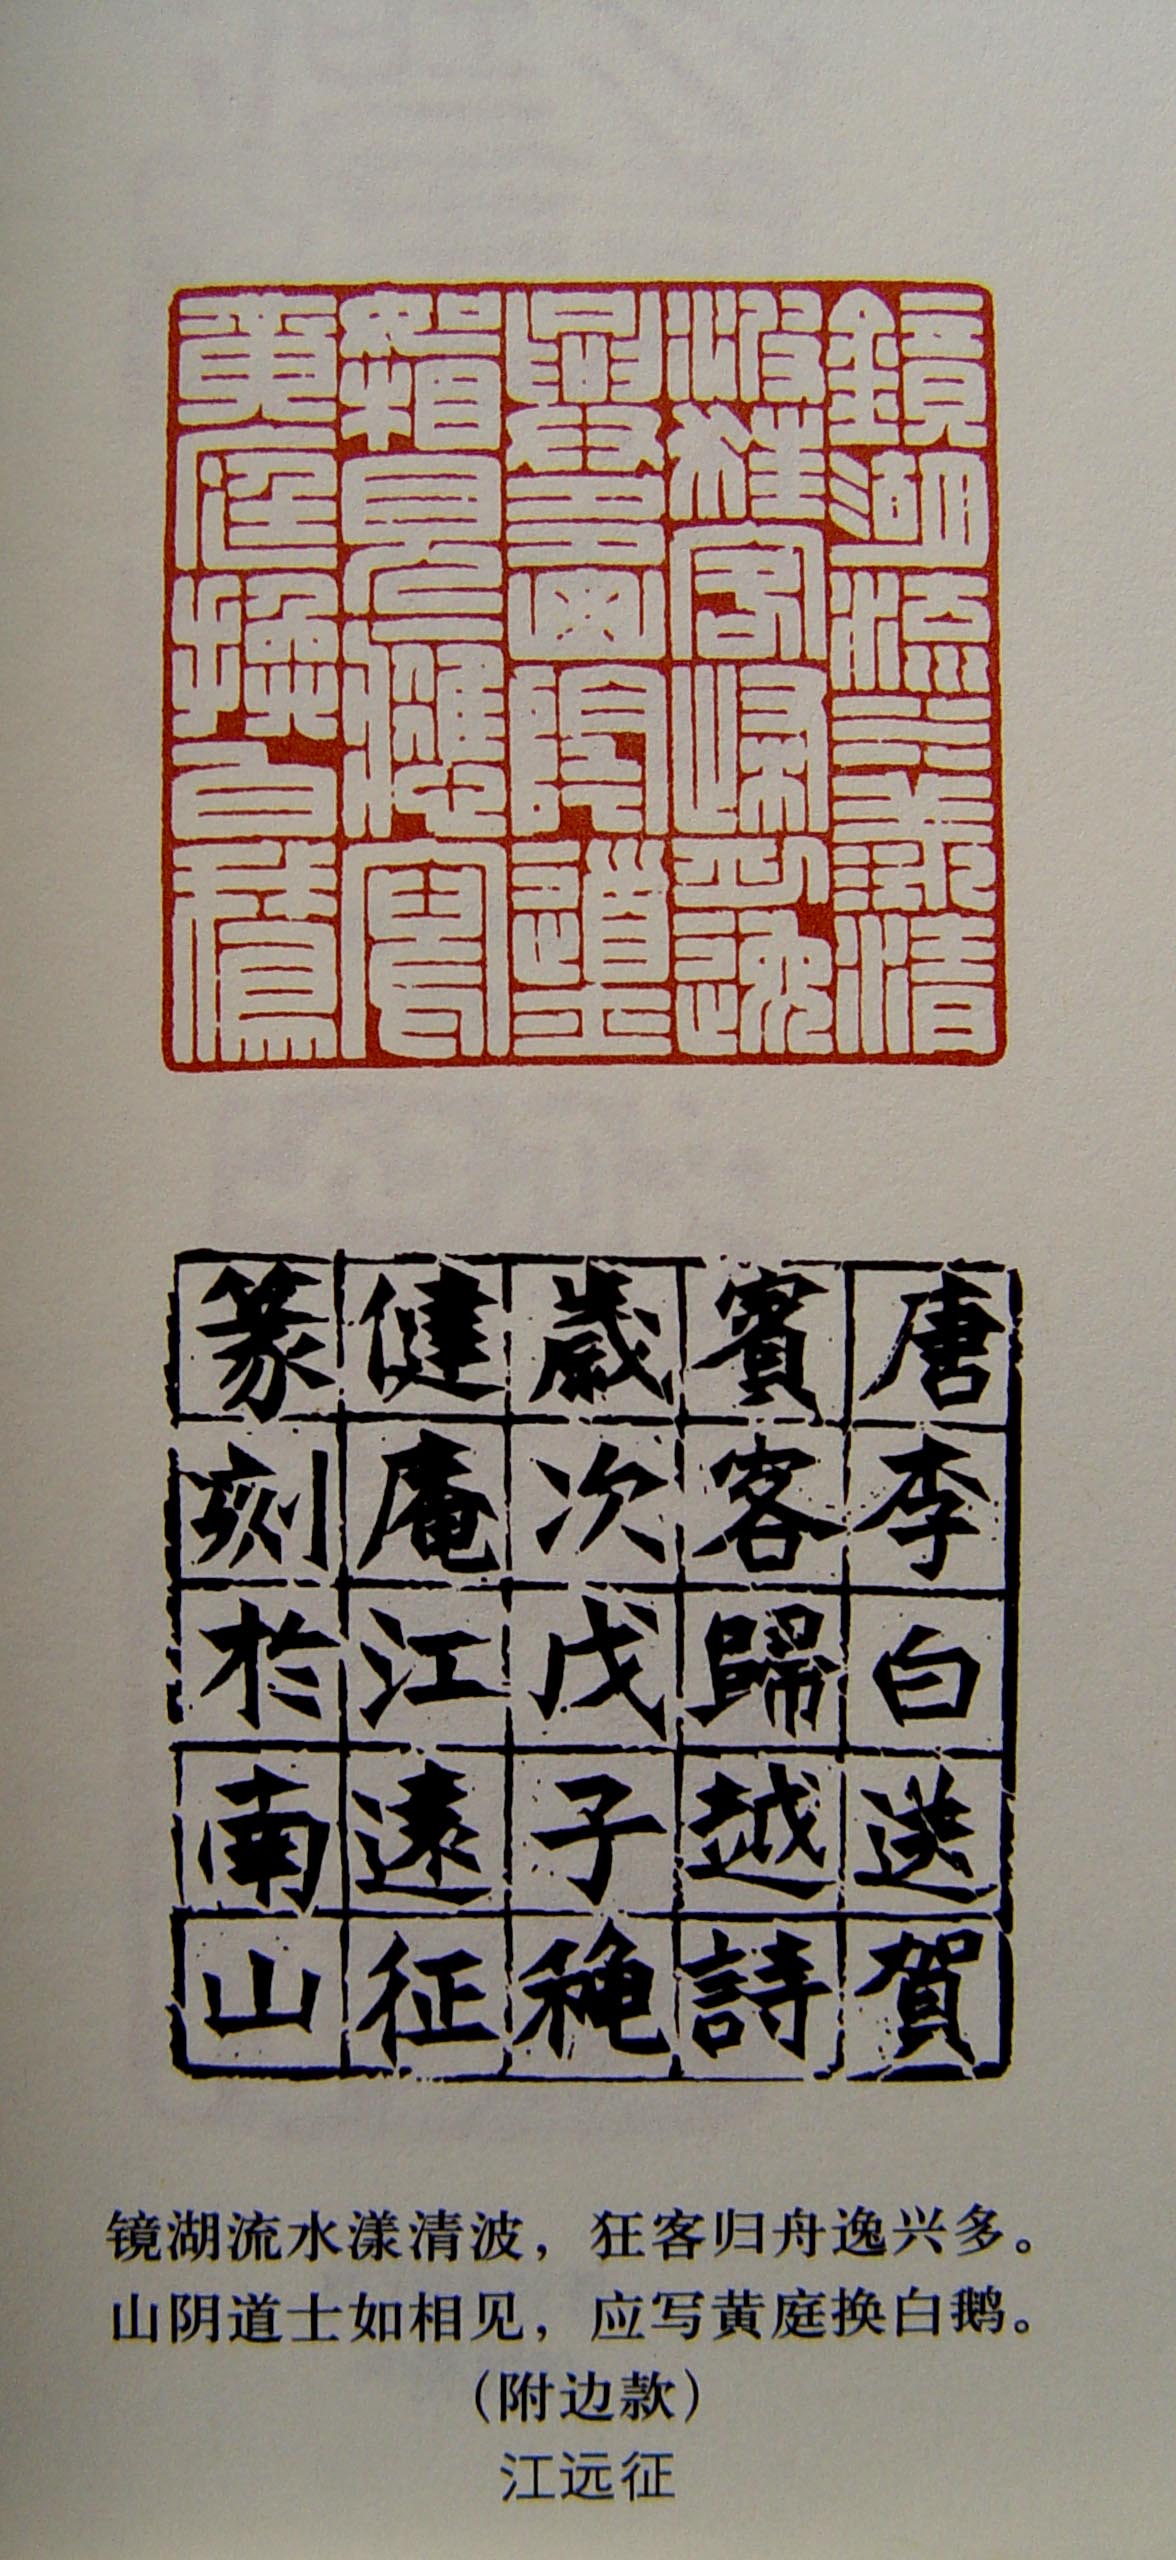 鏡湖流水漾清
波狂客歸舟逸
興多山陰道士
如相見應寫
黃庭換白鵝
唐李白送賀
賓客歸越詩
歲次戊子穐
健庵江遠征
篆刻於南山
镜湖流水漾清波，狂客归舟逸兴多。
山阴道士如相见，应写黄庭换白鹅。
（附边款）
江远征